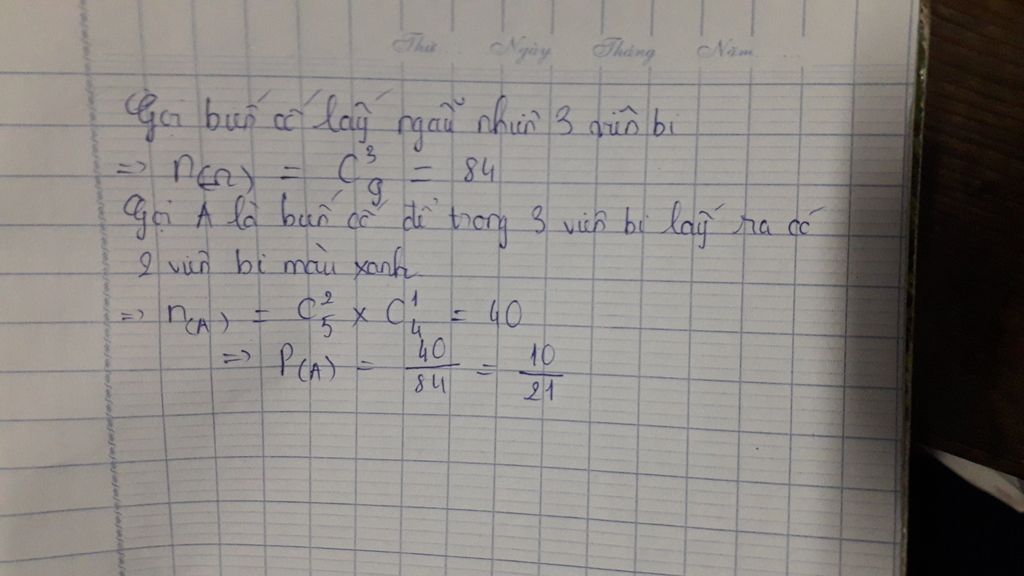 Thứ Ngày Tháng Năm
Gọi biến cố lấy ngẫu nhiên 3 viên bi
=> n(Ω) = C³₉ = 84
Gọi A là biến cố để trong 3 viên bi lấy ra có
2 viên bi màu xanh
=> n(A) = C²₅ × C¹₄ = 40
=> P(A) = 40/84 = 10/21